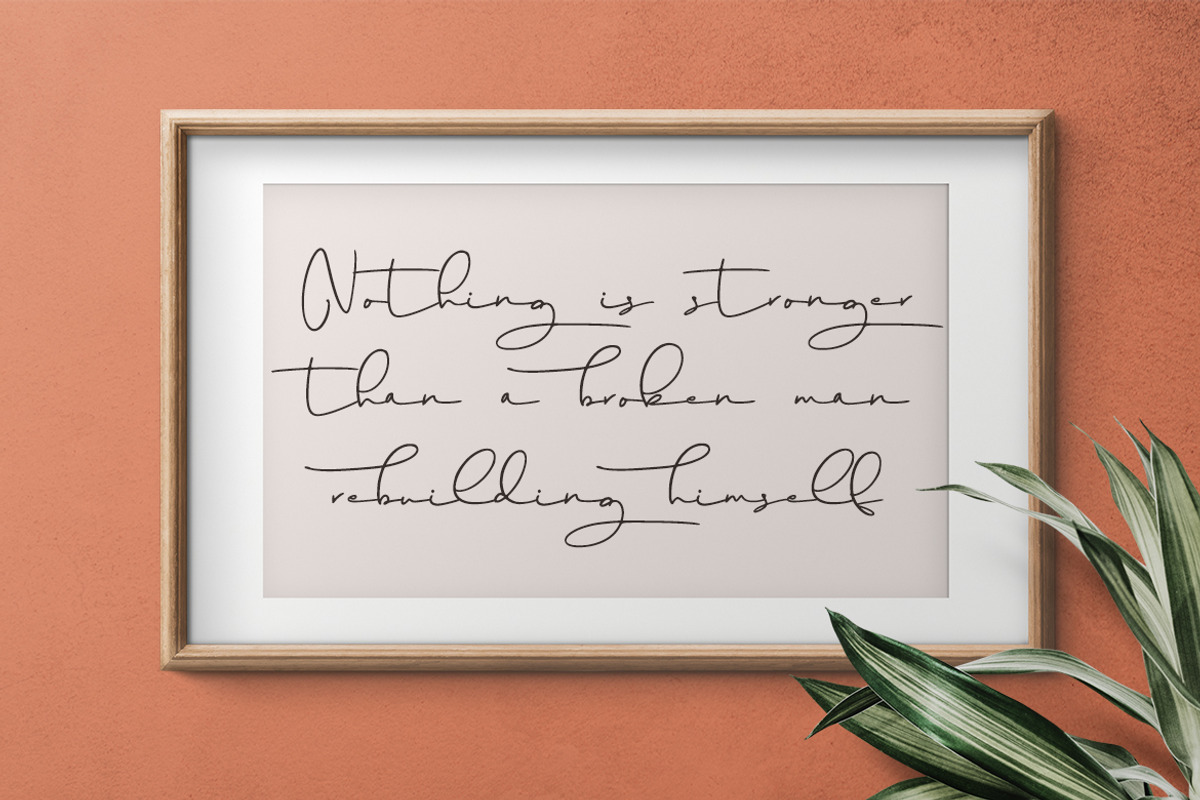 Nothing is stronger
than a broken man
rebuilding himself